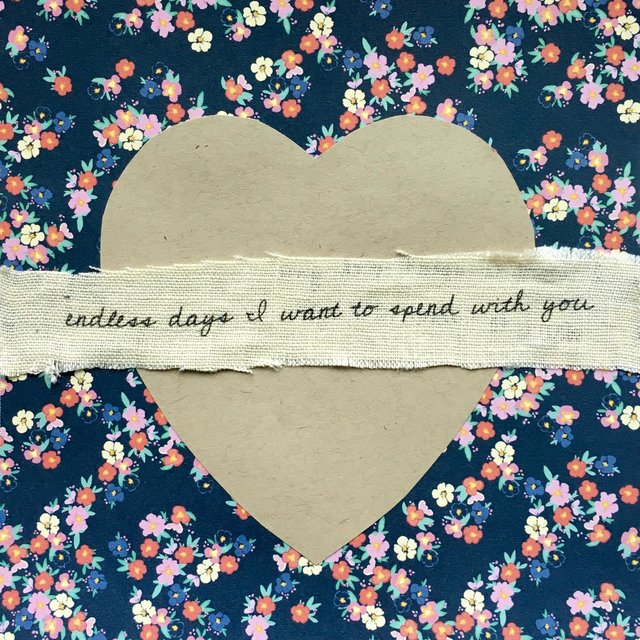 endless days I want to spend with you